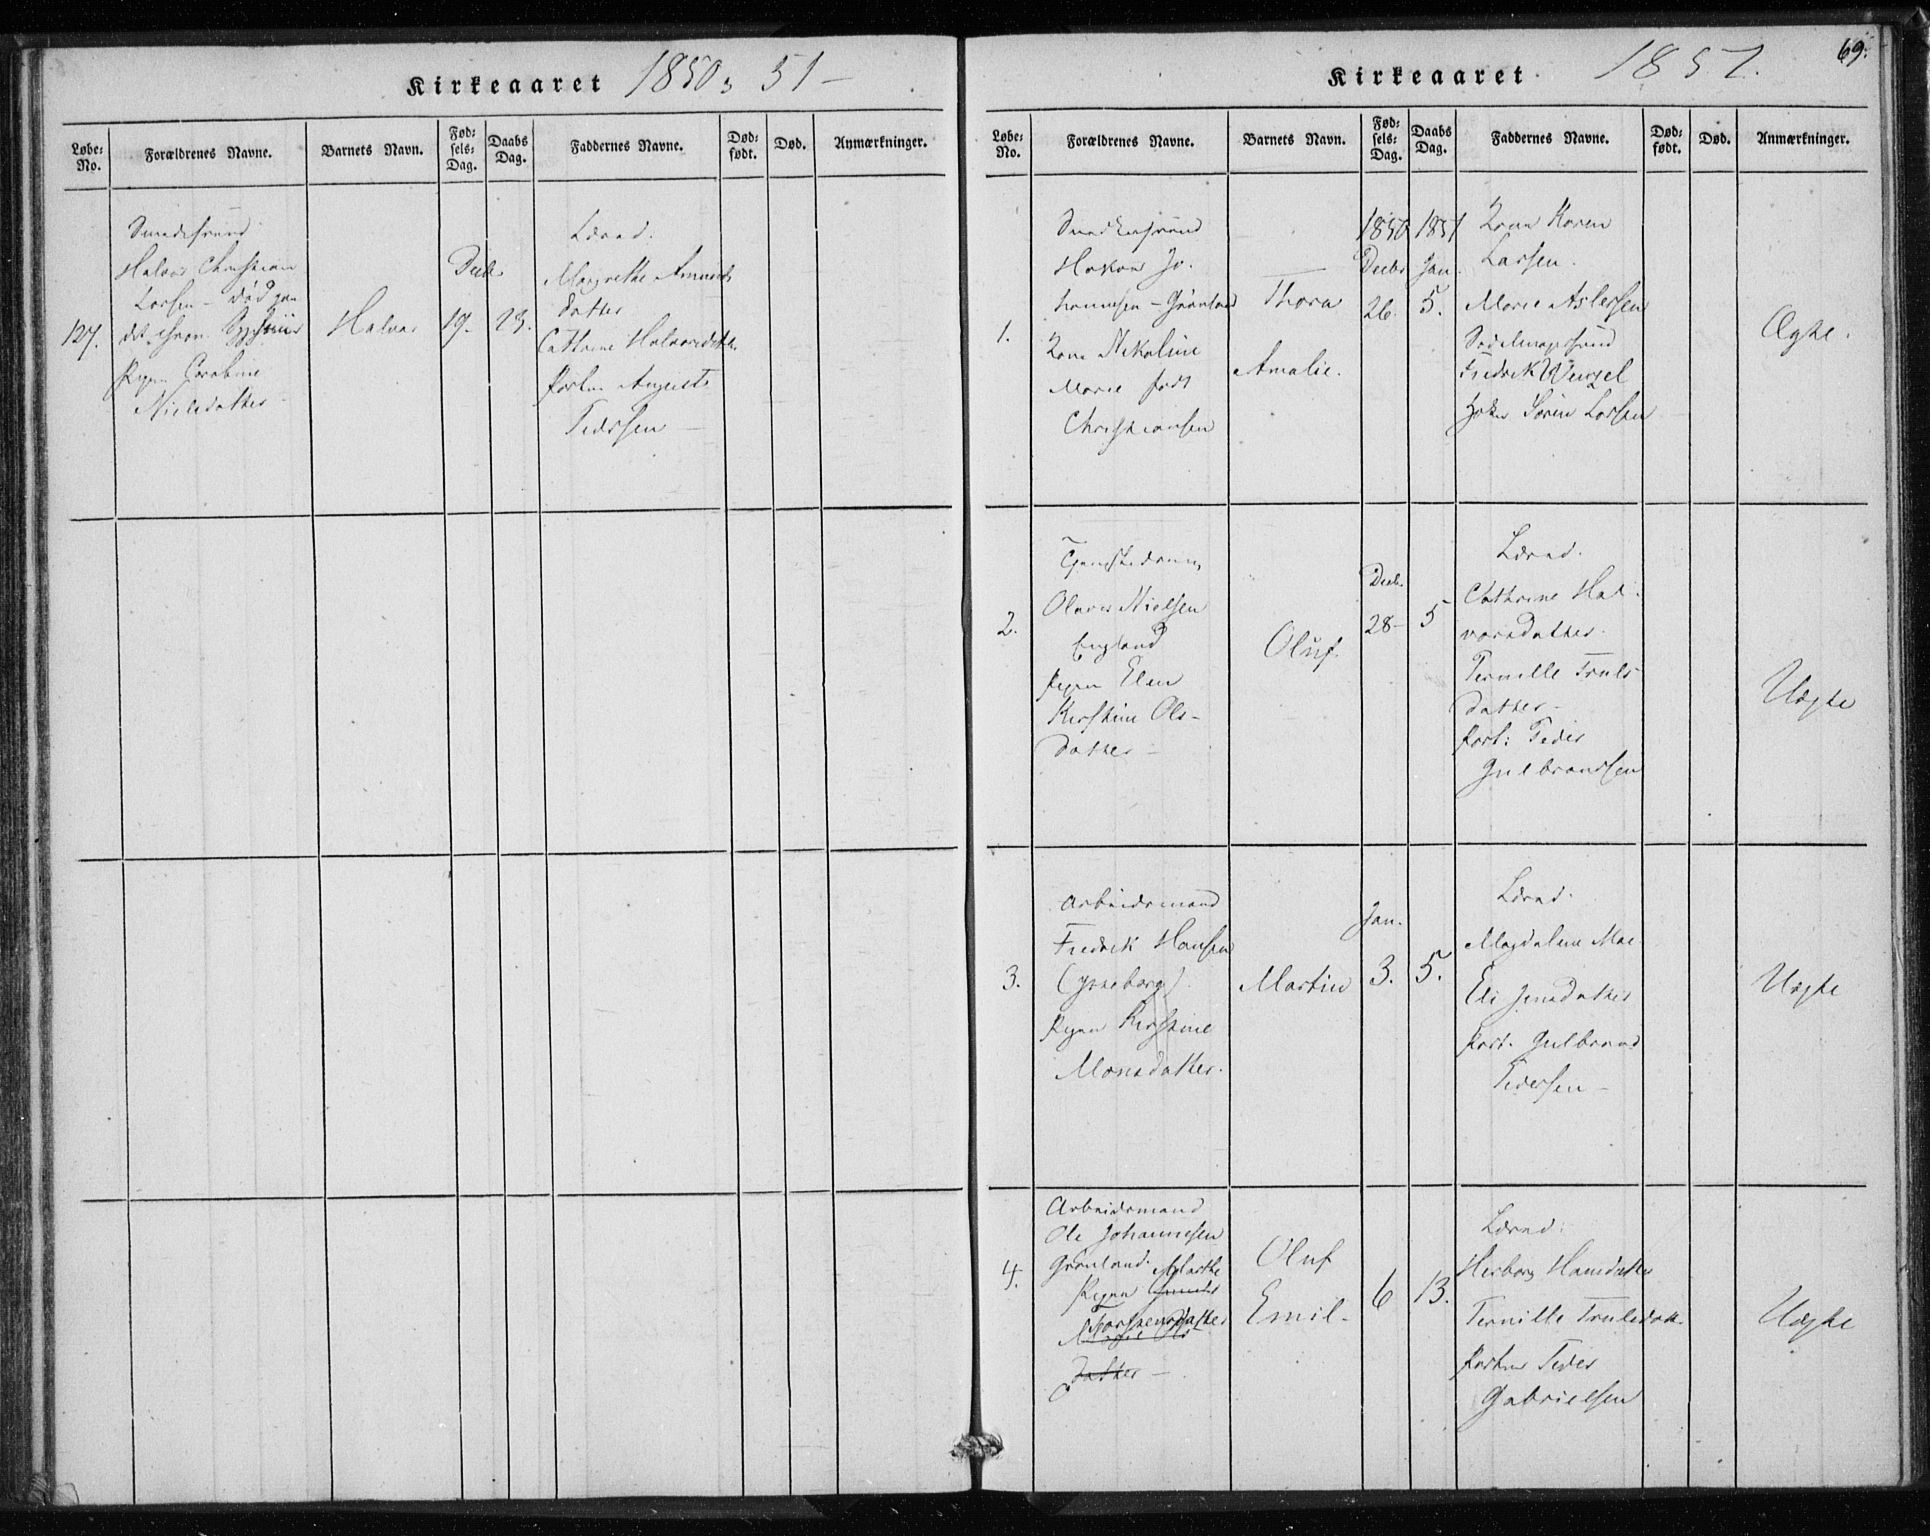 Kirkeaaret 1850 51
Løbe-No.
Forældrenes Navne.
Barnets Navn.
Fødsels-Dag.
Daabs Dag.
Faddernes Navne.
Død-født.
Død.
Anmærkninger.
127.
Smedesvend
Halvor Christian
Larsen - død
Pigen
Nielsdatter
Halvor
Decbr
19.
23.
Lærad.
Margrethe Amunds
datter
Cathrine Halvorsdatt.
Porten August
Pedersen
69.
Kirkeaaret 1851.
Løbe-No.
Forældrenes Navne.
Barnets Navn.
Fød-sels-Dag.
Daabs Dag.
Faddernes Navne.
Død-født.
Død.
Anmærkninger.
1.
Snedkersvend
Hakon Jo-
hannesen - Grønland
Kone Nikoline
Marie født
Christiansen
Thora
Amalie.
1850
Decbr
26.
1851
Jan.
5.
Kone Karen
Larsen.
Marie Aslersen
Sadelmagersvend
Fredrik Wenzel
Høker Søren Larsen
Ægte.
2.
Tjenestedreng
Olaves Nielsen
England
Pigen Elen
Kirstine Ols-
datter
Oluf.
Decbr.
28
5
Lærad.
Cathrine Hal-
vorsdatter.
Pernille Truls
datter
Port: Peder
Gulbrandsen
Uægte
3.
Arbeidsmand
Fredrik Hansen
Pigen Kirstine
Monsdatter.
Martin
Jan.
3.
5.
Lærad.
Magdalene Moe
Eli Jensdatter
Port. Gulbrand
Pedersen
Uægte
4.
Arbeidsmand
Ole Johannesen
Grønland. Marthe
Pigen
Torstensdatter
datter
Oluf
Emil.
6
13.
Lærad.
Herborg Hansdatter
Pernille Trulsdatt.
Porten Peder
Gabrielsen
Uægte